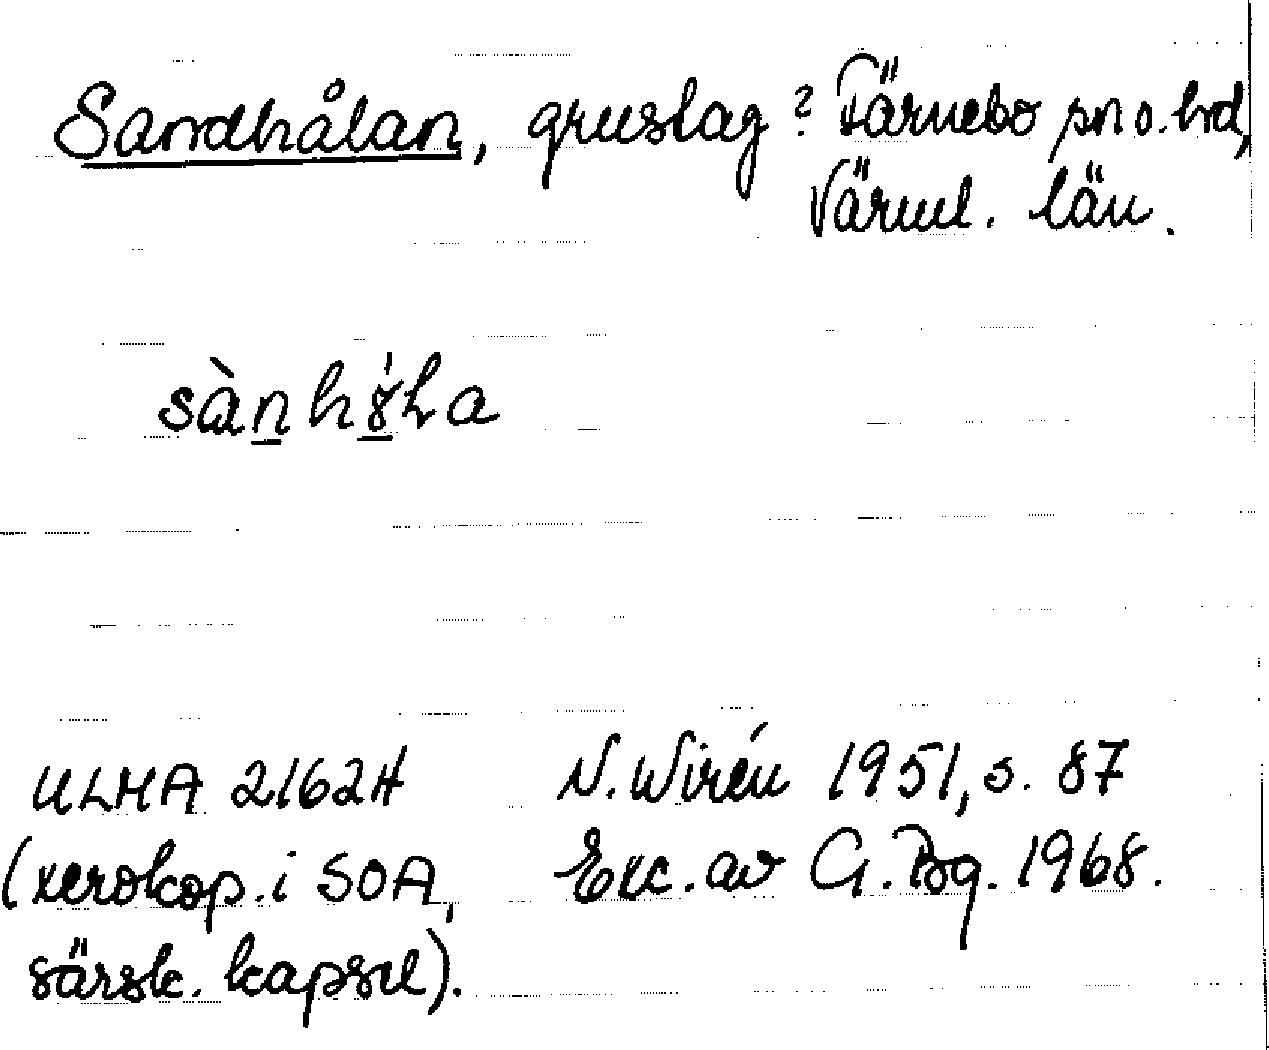 Sandhålan, grustag? Färnebo sn o. hd,
Värml. län.
sàn
ULMA 21624 N. Wirén 1951, s. 87
(xerokop. i SOA, Exc. av G. Bg. 1968.
särsk. kapsel).